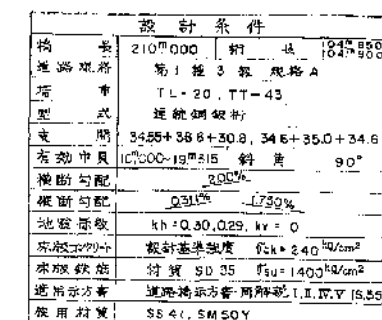 設計条件
橋長 210m000 桁長 104m850 104m900
道路規格 第1種3級 規格A
活荷重 TL-20, TT-43
型式 連続鋼鈑桁
支間 34.55+38.6+30.8, 34.6+35.0+34.6
有効巾員 10m000~19m315 斜角 90°
横断勾配 2.00%
縦断勾配 0.311% 1.730%
地震係数 kh=0.30,0.29, kv=0
床版コンクリート 設計基準強度 σck=240kg/cm2
床版鉄筋 材質 SD 35 σsu=1400kg/cm2
適用示方書 道路橋示方書・同解説 I.II.IV.V (S.55
使用材質 SS41, SM50Y